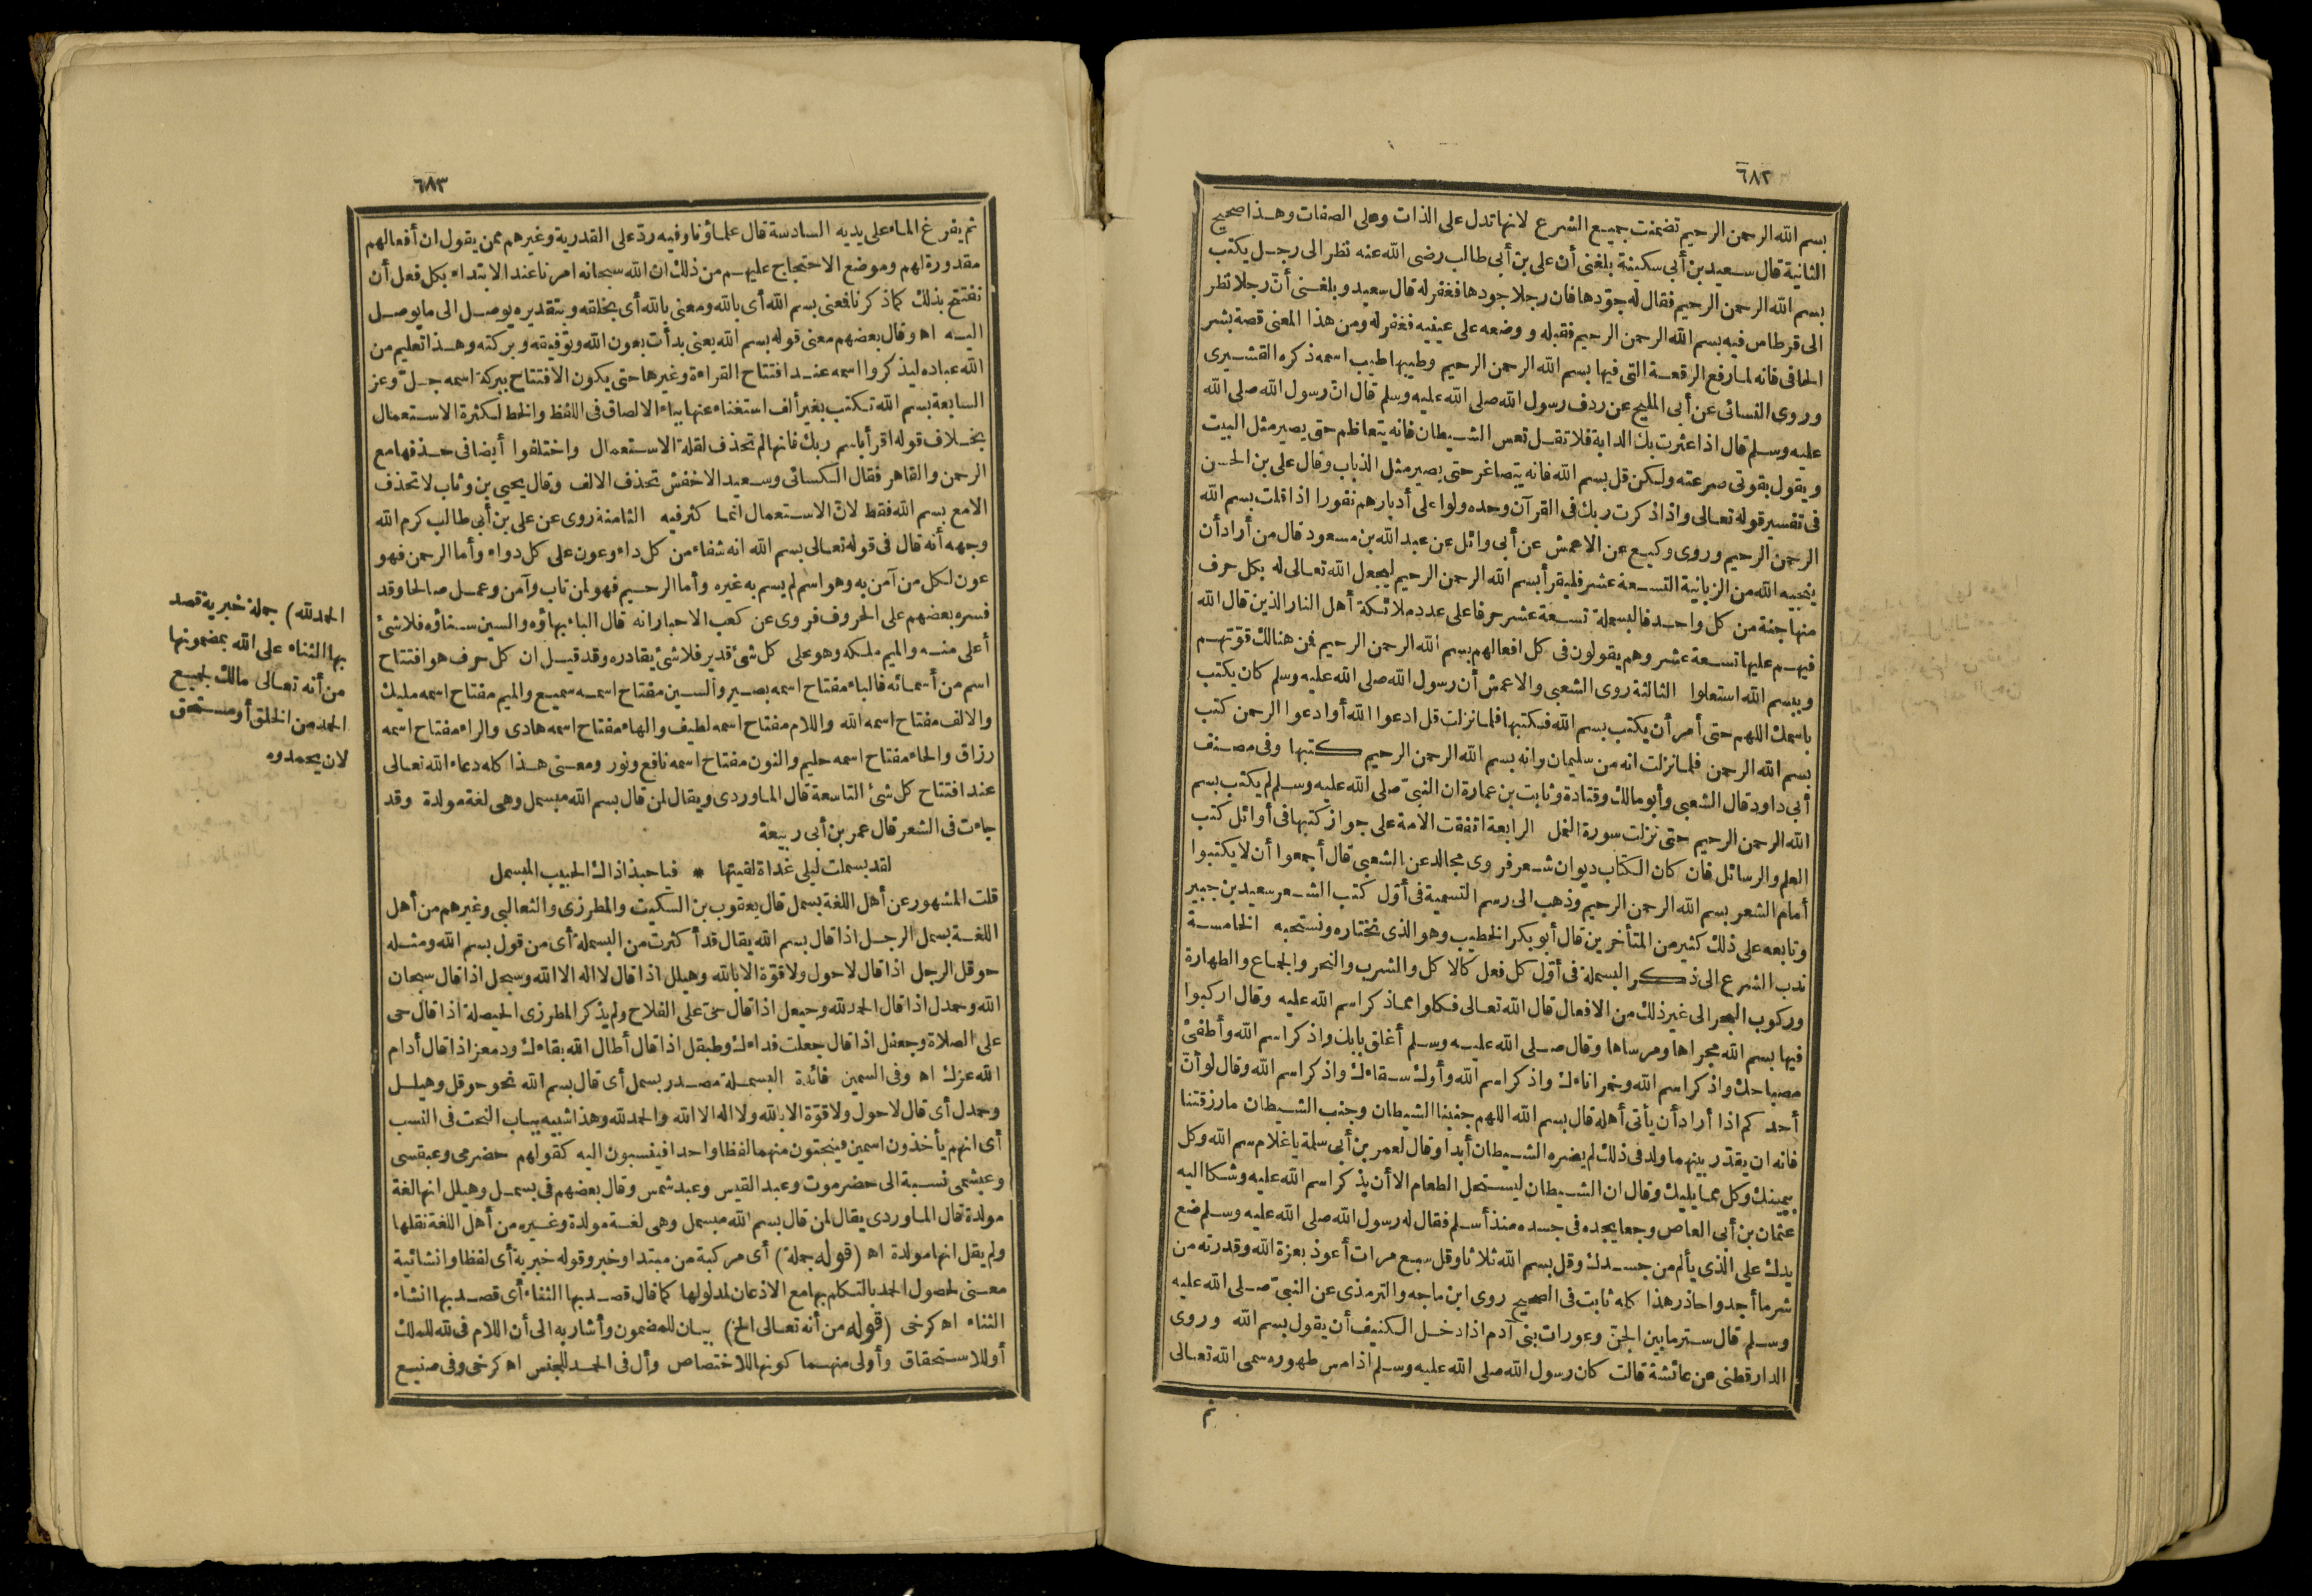 ٦٨٢
بسم الله الرحمن الرحيم تضمنت جميع الشرع لانها تدل على الذات وعلى الصفات وهذا صحيح
الثانية قال سعيد بن أبى سكينة بلغنى أن على بن أبى طالب رضى الله عنه نظر الى رجل يكتب
بسم الله الرحمن الرحيم فقال له جوّدها فان رجلا جودها فغفر له قال سعيد وبلغنى أنّ رجلا نظر
الى قرطاس فيه بسم الله الرحمن الرحيم فقبله ووضعه على عينيه فغفر له ومن هذا المعنى قصة بشر
الحافى فانه لما رفع الرقعة التى فيها بسم الله الرحمن الرحيم وطيبها طيب اسمه ذكره القشيرى
وروى النسائى عن أبى المليح عن ردف رسول الله صلى الله عليه وسلم قال انّ رسول الله صلى الله
عليه وسلم قال اذا عثرت بك الدابة فلا تقل تعس الشيطان فانه يتعاظم حتى يصير مثل البيت
ويقول بقوتى صرعته ولكن قل بسم الله فانه يتصاغر حتى يصير مثل الذباب وقال على بن الحسن
فى تفسير قوله تعالى واذا ذكرت ربك فى القرآن وحده ولوا على أدبارهم نفورا اذا قلت بسم الله
الرحمن الرحيم وروى وكيع عن الاعمش عن أبى وائل عن عبد الله بن مسعود قال من أراد أن
ينجيه الله من الزبانية التسعة عشر فليقرأ بسم الله الرحمن الرحيم ليجعل الله تعالى له بكل حرف
منها جنة من كل واحد فالبسملة تسعة عشر حرفا على عدد ملائكة أهل النار الذين قال الله
فيهم عليها تسعة عشر وهم يقولون فى كل افعالهم بسم الله الرحمن الرحيم فمن هنالك قوّتهم
وببسم الله استعلوا الثالثة روى الشعبى والاعمش أن رسول الله صلى الله عليه وسلم كان يكتب
باسمك اللهم حتى أمر أن يكتب بسم الله فكتبها فلما نزلت قل ادعوا الله أوادعوا الرحمن كتب
بسم الله الرحمن فلما نزلت انه من سليمان وانه بسم الله الرحمن الرحيم كتبها وفى مصنف
أبى داود قال الشعبى وأبو مالك وقتادة وثابت بن عمارة ان النبىّ صلى الله عليه وسلم لم يكتب بسم
الله الرحمن الرحيم حتى نزلت سورة النمل الرابعة اتفقت الامة على جواز كتبها فى أوائل كتب
العلم والرسائل فان كان الكتاب ديوان شعر فروى مجالد عن الشعبى قال أجمعوا أن لا يكتبوا
أمام الشعر بسم الله الرحمن الرحيم وذهب الى رسم التسمية فى أوّل كتب الشعر سعيد بن جبير
وتابعه على ذلك كثير من المتأخرين قال أبو بكر الخطيب وهو الذى نختاره ونستحبه الخامسة
ندب الشرع الى ذكر البسملة فى أوّل كل فعل كالاكل والشرب والنحر والجماع والطهارة
وركوب البحر الى غير ذلك من الافعال قال الله تعالى فكلوا مما ذكر اسم الله عليه وقال اركبوا
فيها بسم الله مجراها ومرساها وقال صلى الله عليه وسلم أغلق بابك واذكر اسم الله وأطفئ
مصباحك واذكر اسم الله وخمر اناءك واذكر اسم الله وأوك سقاءك واذكر اسم الله وقال لو أنّ
أحدكم اذا أراد أن يأتى أهله قال بسم الله اللهم جنبنا الشيطان وجنب الشيطان ما رزقتنا
فانه ان يقدّر بينهما ولد فى ذلك لم يضره الشيطان أبدا وقال لعمر بن أبى سلمة يا غلام سم الله وكل
بيمينك وكل مما يليك وقال ان الشيطان ليستحل الطعام الا أن يذكر اسم الله عليه وشكا اليه
عثمان بن أبى العاص وجعا يجده فى جسده منذ أسلم فقال له رسول الله صلى الله عليه وسلم ضع
يدك على الذى يألم من جسدك وقل بسم الله ثلاثا وقل سبع مرات أعوذ بعزة الله وقدرته من
شر ما أجد وأحاذر هذا كله ثابت فى الصحيح روى ابن ماجه والترمذى عن النبىّ صلى الله عليه
وسلم قال ستر ما بين الجنّ وعورات بنى آدم اذا دخل الكنيف أن يقول بسم الله وروى
الدارقطنى عن عائشة قالت كان رسول الله صلى الله عليه وسلم اذا مس طهوره سمى الله تعالى
ثم
٦٨٣
ثم يفرغ الماء على يديه السادسة قال علماؤنا وفيه ردّ على القدرية وغيرهم ممن يقول ان أفعالهم
مقدورة لهم وموضع الاحتجاج عليهم من ذلك ان الله سبحانه امرنا عند الابتداء بكل فعل أن
نفتتح بذلك كما ذكرنا فمعنى بسم الله أى بالله ومعنى بالله أى بخلقه وبتقديره يوصل الى ما يوصل
اليه اه وقال بعضهم معنى قوله بسم الله يعنى بدأت بعون الله وتوفيقه وبركته وهذا تعليم من
الله عباده ليذكروا اسمه عند افتتاح القراءة وغيرها حتى يكون الافتتاح ببركة اسمه جلّ وعز
السابعة بسم الله تكتب بغير ألف استغناء عنها بباء الالصاق فى اللفظ والخط لكثرة الاستعمال
بخلاف قوله اقرأ باسم ربك فانها لم تحذف لقلة الاستعمال واختلفوا أيضا فى حذفها مع
الرحمن والقاهر فقال الكسائى وسعيد الاخفش تحذف الالف وقال يحيى بن وثاب لا تحذف
الا مع بسم الله فقط لانّ الاستعمال انما كثر فيه الثامنة روى عن على بن أبى طالب كرم الله
وجهه أنه قال فى قوله تعالى بسم الله انه شفاء من كل داء وعون على كل دواء وأما الرحمن فهو
عون لكل من آمن به وهو اسم لم يسم به غيره وأما الرحيم فهو لمن تاب وآمن وعمل صالحا وقد
فسره بعضهم على الحروف فروى عن كعب الاحبار انه قال الباء بهاؤه والسين سناؤه فلا شئ
أعلى منه والميم ملكه وهو على كل شئ قدير فلا شئ يقادره وقد قيل ان كل حرف هو افتتاح
اسم من أسمائه فالباء مفتاح اسمه بصير والسين مفتاح اسمه سميع والميم مفتاح اسمه مليك
والالف مفتاح اسمه الله واللام مفتاح اسمه لطيف والهاء مفتاح اسمه هادى والراء مفتاح اسمه
رزاق والحاء مفتاح اسمه حليم والنون مفتاح اسمه نافع ونور ومعنى هذا كله دعاء الله تعالى
عند افتتاح كل شئ التاسعة قال الماوردى ويقال لمن قال بسم الله مبسمل وهى لغة مولدة وقد
جاءت فى الشعر قال عمر بن أبى ربيعة
لقد بسملت ليلى غداة لقيتها * فياحبذا ذاك الحبيب المبسمل
قلت المشهور عن أهل اللغة بسمل قال يعقوب بن السكيت والمطرزى والثعالبى وغيرهم من أهل
اللغة بسمل الرجل اذا قال بسم الله يقال قد أكثرت من البسملة أى من قول بسم الله ومثله
حوقل الرجل اذا قال لا حول ولا قوّة الا بالله وهيلل اذا قال لا اله الا الله وسبحل اذا قال سبحان
الله وحمدل اذا قال الحمد لله وحيعل اذا قال حىّ على الفلاح ولم يذكر المطرزى الحيصلة اذا قال حى
على الصلاة وجعفل اذا قال جعلت فداءك وطبقل اذا قال أطال الله بقاءك ودمعز اذا قال أدام
الله عزك اه وفى السمين فائدة البسملة مصدر بسمل أى قال بسم الله نحو حوقل وهيلل
وحمدل أى قال لا حول ولا قوّة الا بالله ولا اله الا الله والحمد لله وهذا شبيه بباب النحت فى النسب
أى انهم يأخذون اسمين فينحتون منهما لفظا واحدا فينسبون اليه كقولهم حضرمى وعبقسى
وعبشمى نسبة الى حضرموت وعبد القيس وعبد شمس وقال بعضهم فى بسمل وهيلل انها لغة
مولدة قال الماوردى يقال لمن قال بسم الله مبسمل وهى لغة مولدة وغيره من أهل اللغة نقلها
ولم يقل انها مولدة اه (قوله جملة) أى مركبة من مبتدا وخبر وقوله خبرية أى لفظا وانشائية
معنى لحصول الحمد بالتكلم بها مع الاذعان لمدلولها كما قال قصد بها الثناء أى قصد بها انشاء
الثناء اه كرخى (قوله من أنه تعالى الخ) بيان للمضمون وأشار به الى أن اللام فى لله للملك
أو للاستحقاق وأولى منهما كونها للاختصاص وأل فى الحمد للجنس اه كرخى وفى صنيع
الحمد لله) جملة خبرية قصد
بها الثناء على الله بمضمونها
من أنه تعالى مالك لجميع
الحمد من الخلق أو مستحق
لان يحمدوه